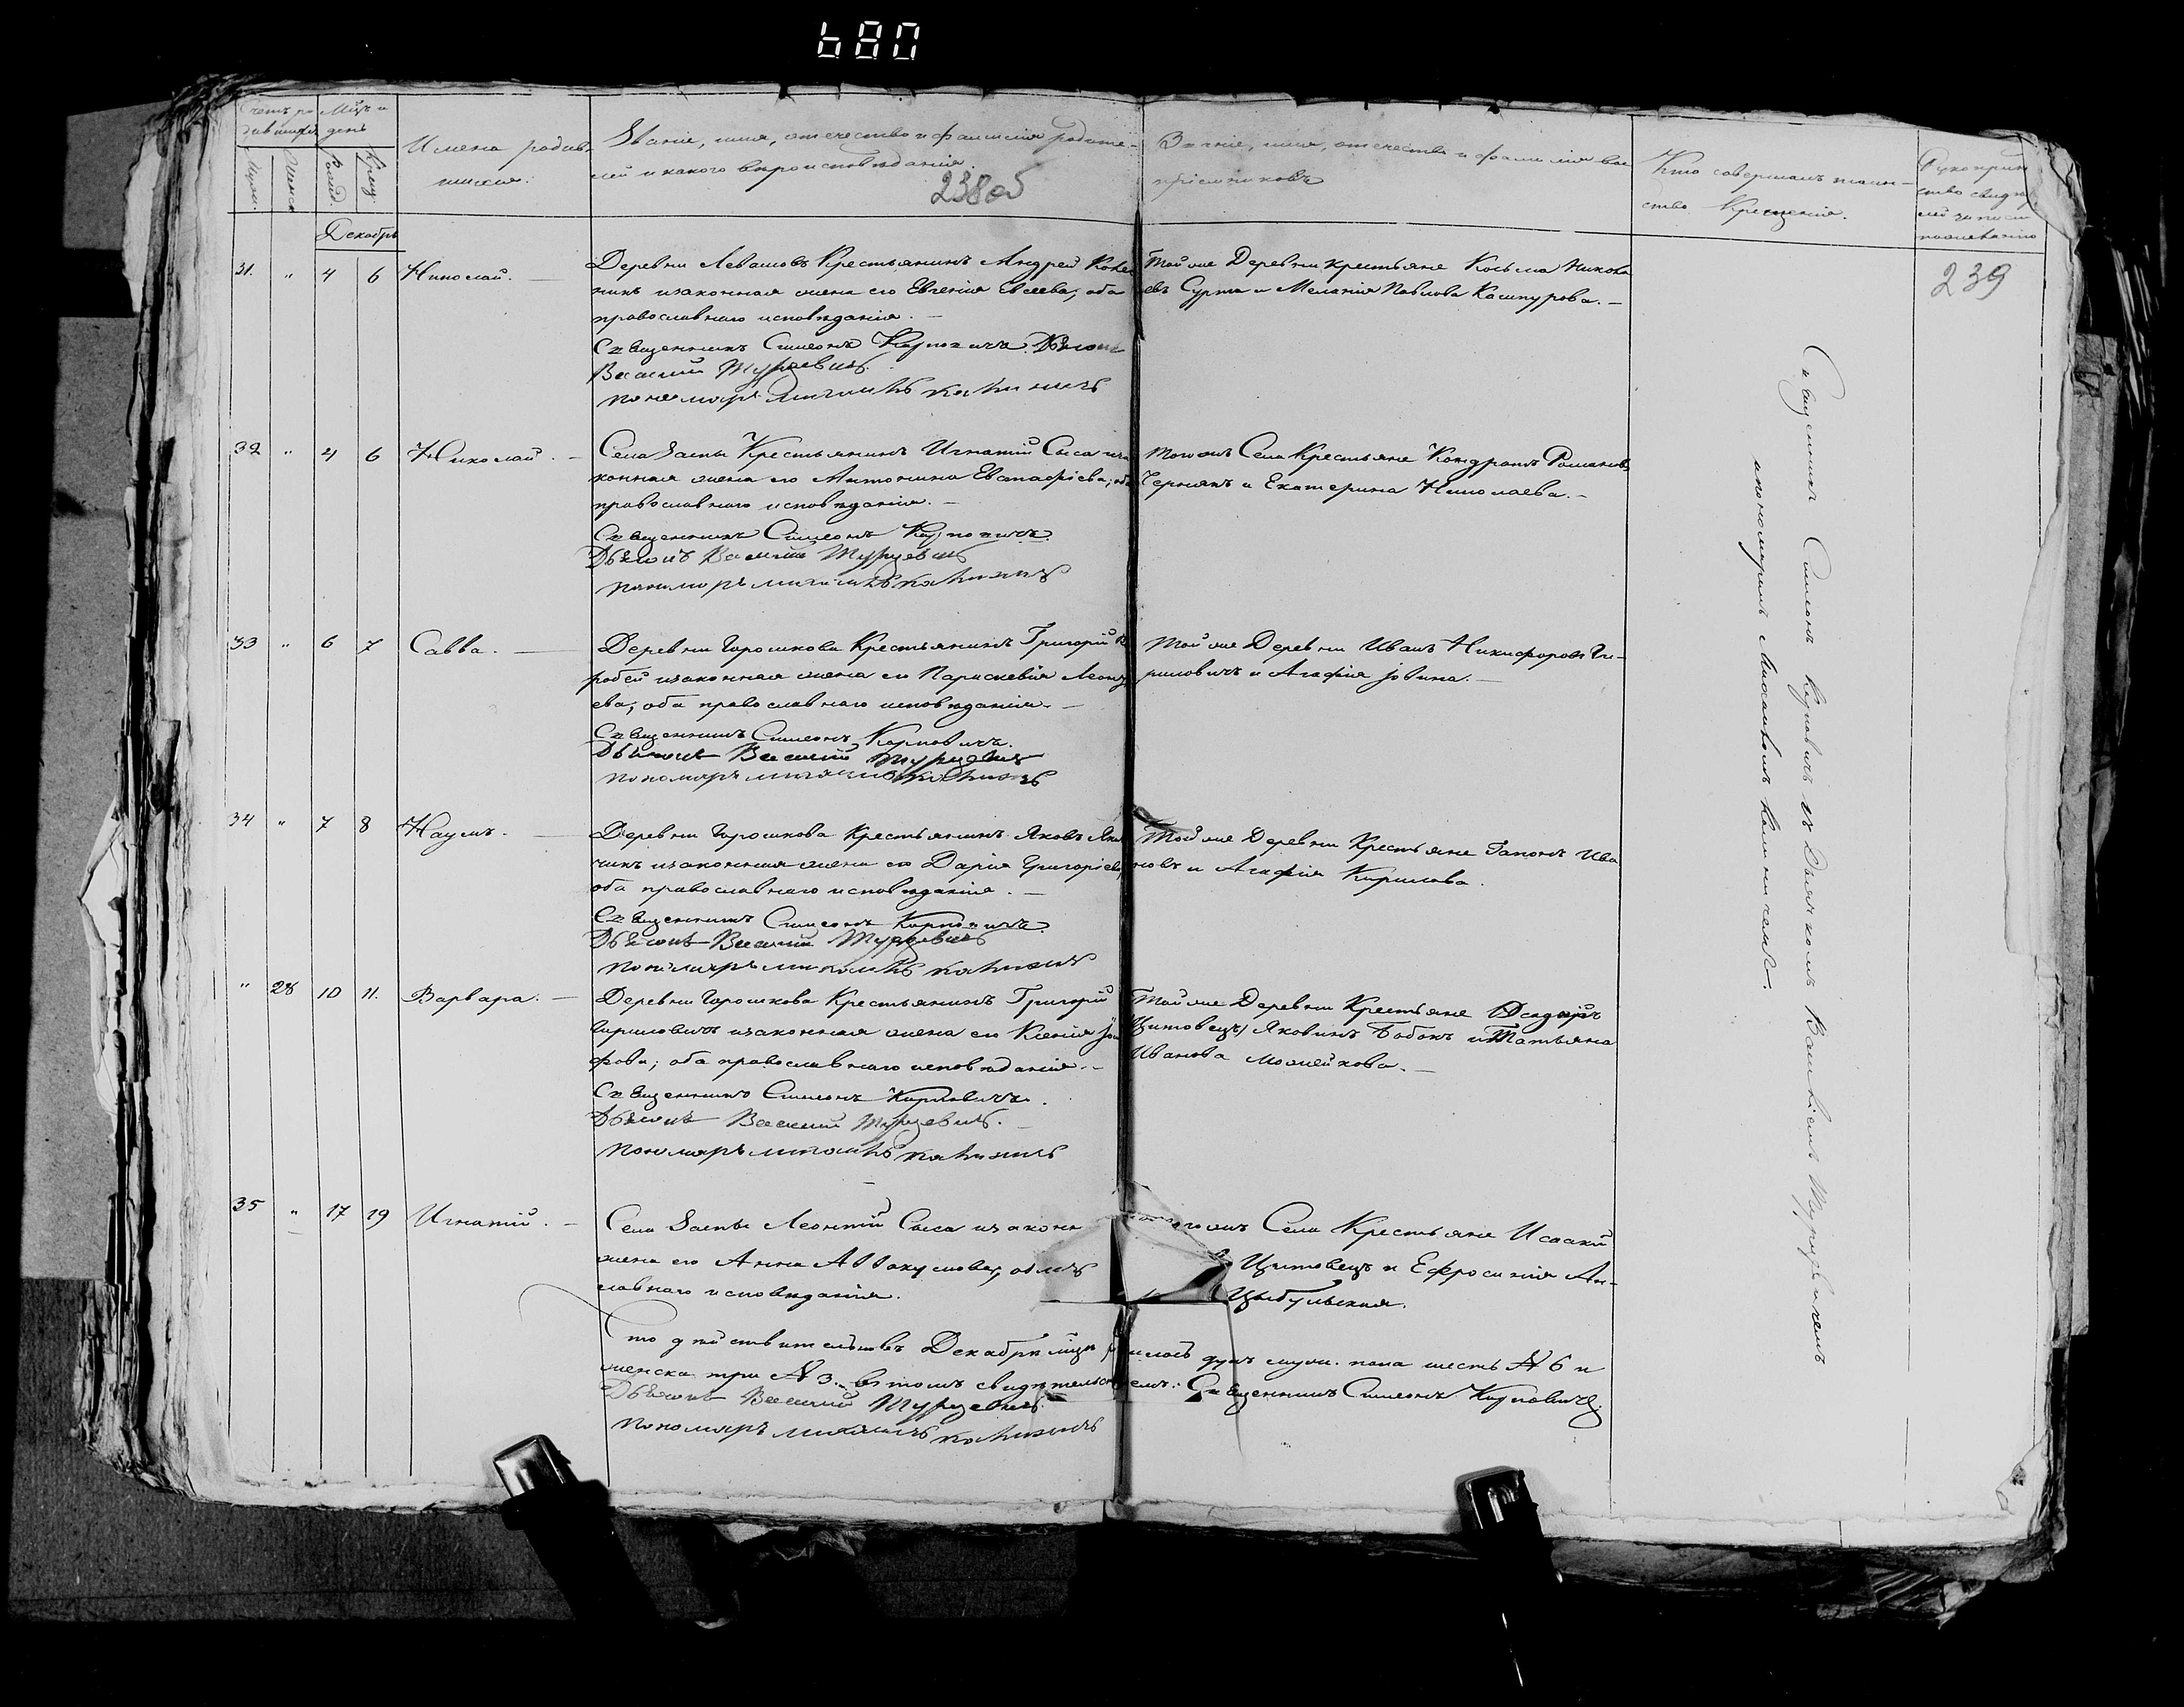 680
Счетъ ро- Мѣцъ и
дившихся день
Имена родив-
шихся.
Званіе, имя, отечество и фамилія родите-
лей и какого вѣроисповѣданія.
238об
Званіе, имя, отечество и фамилія вос-
пріемниковъ
Кто совершалъ таин-
ство Крещенія.
Рукоприк
ство свидѣте
лей записи
по желанію
239
Муж. Женск. Рожд. Крещ.
Декабрь
31. " 4 6 Николай.
Деревни Левашовъ Крестьянинъ Андрей
чикъ и законная жена его Евгенія Евсеева, оба
православнаго исповѣданія.
Священникъ Симеонъ Карповичъ. Дьячокъ
Василій Турцевичъ
пономарь
Той же Деревни крестьяне Косьма Никола
евъ Сурта и Меланія Павлова Кашпурова.
32 " 4 6 Николай.
Села Заспы Крестьянинъ Игнатій Сыса и за
конная жена его Антонина Евстафіева, оба
православнаго исповѣданія.
Священникъ Симеонъ Карповичъ.
Дьячокъ Василій Турцевичъ
пономарь
Того жъ Села Крестьяне Кондратъ Романовъ
Чернякъ и Екатерина Николаева.
33 " 6 7 Савва.
Деревни Горошкова Крестьянинъ Григорій
робей и законная жена его Параскевія Леонть
ева, оба православнаго исповѣданія.
Священникъ Симеонъ Карповичъ.
Дьячокъ Василій Турцевичъ
пономарь
Той же Деревни Иванъ Никифоровъ Ги-
риловичъ и Агафія Іовина.
34 " 7 8 Наумъ.
Деревни Горошкова Крестьянинъ Яковъ
чикъ и законная жена его Дарія Григоріева,
оба православнаго исповѣданія.
Священникъ Симеонъ Карповичъ.
Дьячокъ Василій Турцевичъ
пономарь
Той же Деревни Крестьяне Гапонъ Ива
новъ и Агафія Кирилова.
" 28 10 11. Варвара.
Деревни Горошкова Крестьянинъ Григорій
Гириловичъ и законная жена его Ксенія Іоси
фова; оба православнаго исповѣданія.
Священникъ Симеонъ Карповичъ.
Дьячокъ Василій Турцевичъ.
пономарь
Той же Деревни Крестьяне
Цитовецъ, Яковинъ Бобокъ и Татьяна
Иванова Можейкова.
35 " 17 19 Игнатій.
Села Заспы Леонтій Сыса и законн
жена его Анна Аввакумова,
славнаго исповѣданія.
жъ Села Крестьяне Исаакій
Цитовецъ и Ефросинія Ан-
Цыбульская.
Что действительно въ Декабрѣ мѣцѣ родилось душъ муж. пола шесть № 6 и
женска три № 3. въ томъ свидѣтельствуемъ: Священникъ Симеонъ Карповичъ.
Дьячокъ Василій Турцевичъ.
пономарь
Священникъ Симеонъ Карповичъ съ Дьячкомъ Василіемъ Турцевичемъ
и пономаремъ